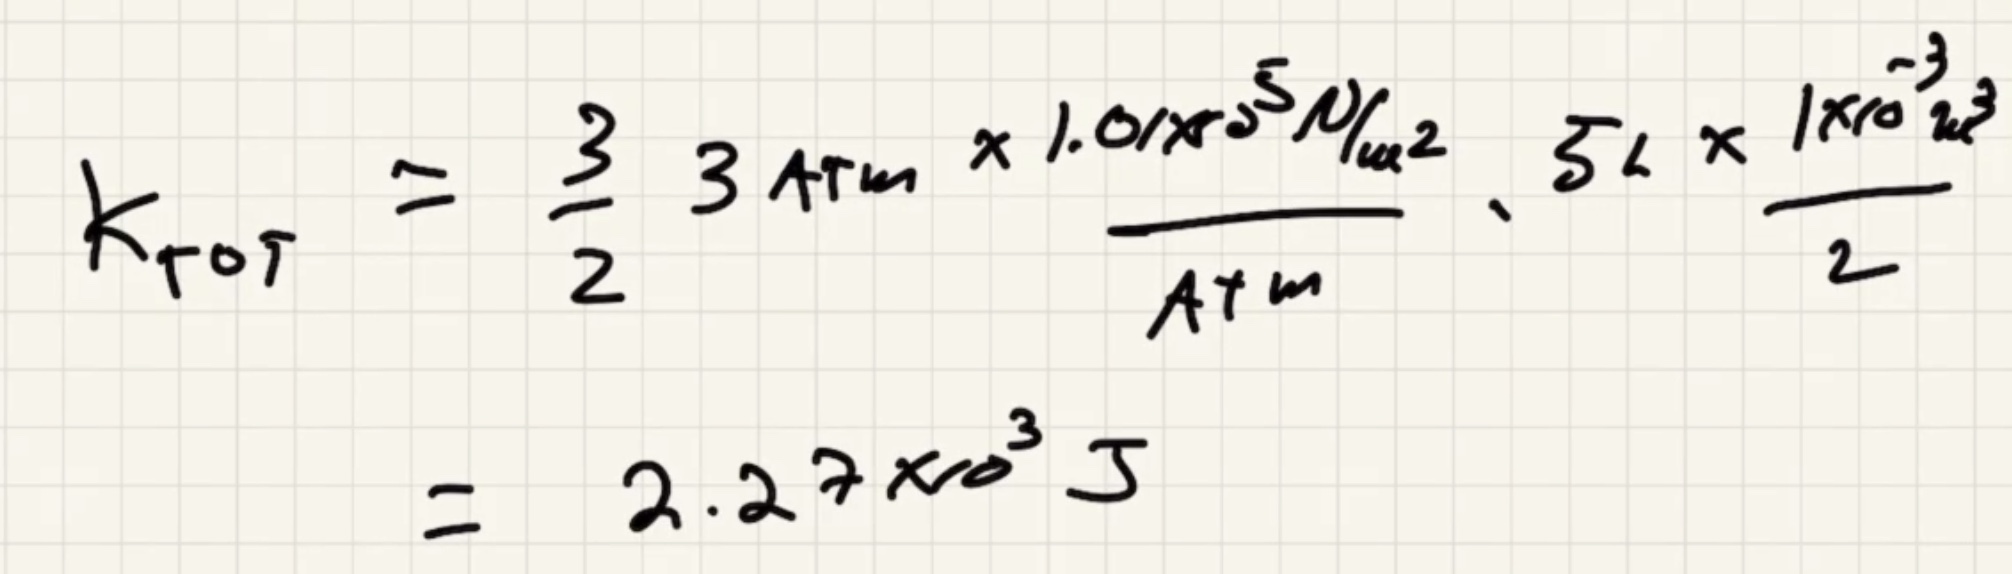 K_TOT = 3/2 3 ATm × 1.01×10^5 N/m^2 / ATm · 5L × 1×10^-3 m^3 / L
= 2.27×10^3 J